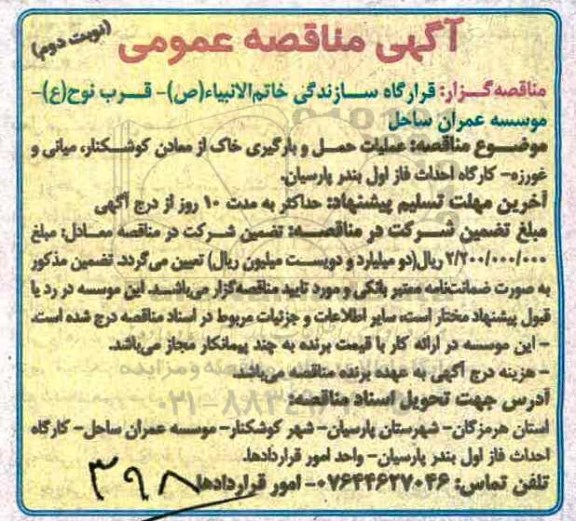 آگهی مناقصه عمومی
(نوبت دوم)
مناقصه‌گزار: قرارگاه سازندگی خاتم‌الانبیاء(ص)- قرب نوح(ع)-
موسسه عمران ساحل
موضوع مناقصه: عملیات حمل و بارگیری خاک از معادن کوشکنار، میانی و
غورزه- کارگاه احداث فاز اول بندر پارسیان.
آخرین مهلت تسلیم پیشنهاد: حداکثر به مدت ۱۰ روز از درج آگهی
مبلغ تضمین شرکت در مناقصه: تضمین شرکت در مناقصه معادل: مبلغ
۲/۲۰۰/۰۰۰/۰۰۰ ریال(دو میلیارد و دویست میلیون ریال) تعیین می‌گردد. تضمین مذکور
به صورت ضمانت‌نامه معتبر بانکی و مورد تایید مناقصه‌گزار می‌باشد. این موسسه در رد یا
قبول پیشنهاد مختار است، سایر اطلاعات و جزئیات مربوط در اسناد مناقصه درج شده است.
- این موسسه در ارائه کار با قیمت برنده به چند پیمانکار مجاز می‌باشد.
- هزینه درج آگهی به عهده برنده مناقصه می‌باشد.
آدرس جهت تحویل اسناد مناقصه:
استان هرمزگان- شهرستان پارسیان- شهر کوشکنار- موسسه عمران ساحل- کارگاه
احداث فاز اول بندر پارسیان- واحد امور قراردادها.
تلفن تماس: ۰۷۶۴۴۶۲۷۰۴۶- امور قراردادها
۳۹۸